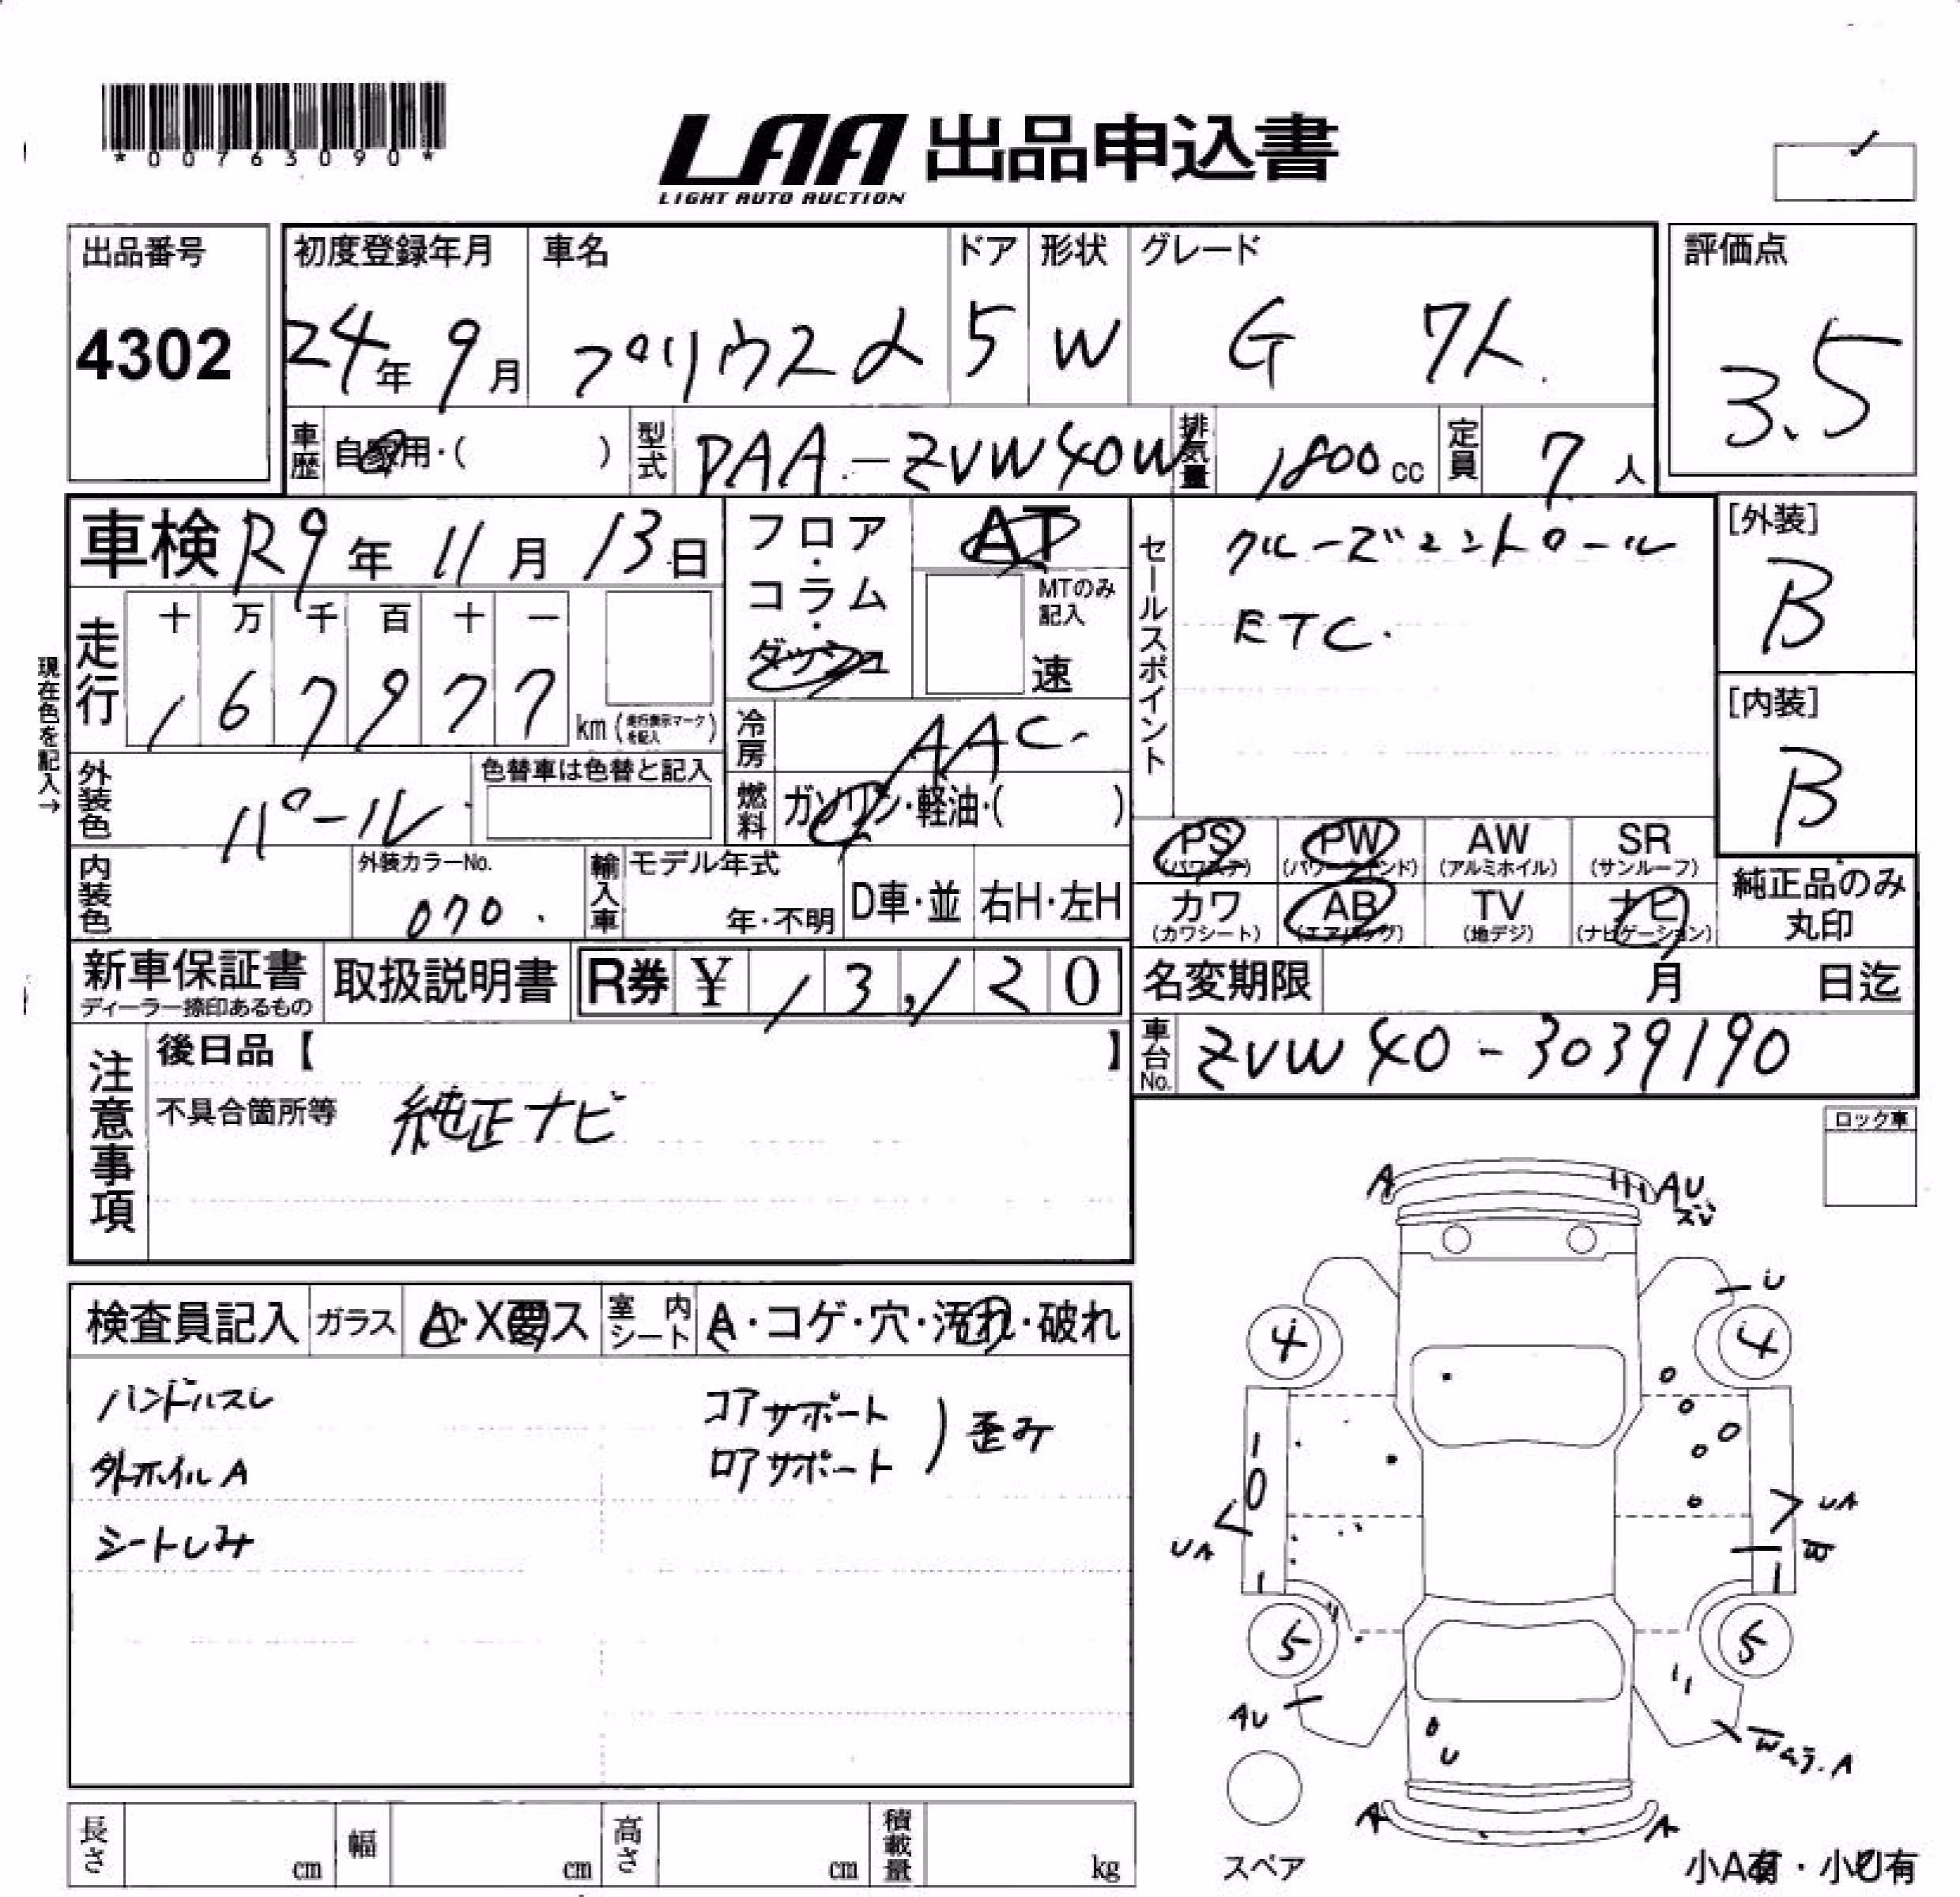 *00763090*
LAA 出品申込書
LIGHT AUTO AUCTION
出品番号
4302
初度登録年月
24年 9月
車名
プリウスα
ドア
5
形状
W
グレード
G 7人.
評価点
3.5
車歴 自家用・( )
型式 DAA-ZVW40W
排気量 1800cc
定員 7人
車検 R9年 11月 13日
フロア・コラム・ダッシュ
AT
MTのみ記入
速
セールスポイント
クルーズコントロール
ETC.
[外装]
B
[内装]
B
現在色を記入→
走行
十 万 千 百 十 一
1 6 7 9 7 7
km (走行表示マークを記入)
冷房 AAC.
燃料 ガソリン・軽油・( )
外装色 パール
色替車は色替と記入
内装色
外装カラーNo.
070.
輸入車
モデル年式
年・不明
D車・並
右H・左H
PS (パワステ)
PW (パワーウインド)
AW (アルミホイル)
SR (サンルーフ)
カワ (カワシート)
AB (エアバッグ)
TV (地デジ)
ナビ (ナビゲーション)
純正品のみ丸印
新車保証書
ディーラー捺印あるもの
取扱説明書
R券 ¥ 13,120
名変期限 月 日迄
車台No. ZVW40-3039190
注意事項
後日品【 】
不具合箇所等 純正ナビ
ロック車
検査員記入
ガラス A・X要ス
室内シート A・コゲ・穴・汚れ・破れ
ハンドルスレ
外ホイルA
シートしみ
コアサポート
ロアサポート
) 歪み
A
AU
スレ
U
4
4
UA
UA
W
5
5
AU
U
Wムラ.A
A
A
スペア
小A有・小U有
長さ cm
幅 cm
高さ cm
積載量 kg